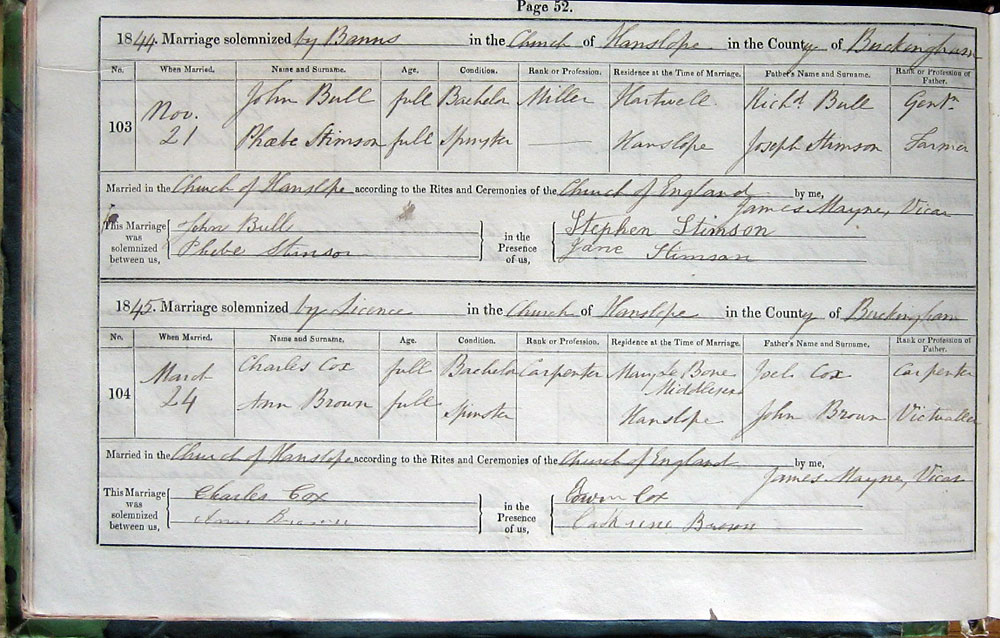 Page 52.
1844. Marriage solemnized by Banns in the Church of Hanslope in the County of Buckingham
No. When Married. Name and Surname. Age. Condition. Rank or Profession. Residence at the Time of Marriage. Father's Name and Surname. Rank or Profession of Father.
103 Nov. 21 John Bull full Bachelor Miller Hartwell Richd Bull Gentn
Phœbe Stimson full Spinster — Hanslope Joseph Stimson Farmer
Married in the Church of Hanslope according to the Rites and Ceremonies of the Church of England by me,
James Mayne, Vicar
This Marriage was solemnized between us, John Bull in the Presence of us, Stephen Stimson
Phebe Stimson Jane Stimson
1845. Marriage solemnized by Licence in the Church of Hanslope in the County of Buckingham
No. When Married. Name and Surname. Age. Condition. Rank or Profession. Residence at the Time of Marriage. Father's Name and Surname. Rank or Profession of Father.
104 March 24 Charles Cox full Bachelor Carpenter Mary le Bone Middlesex Joel Cox Carpenter
Ann Brown full Spinster Hanslope John Brown Victualler
Married in the Church of Hanslope according to the Rites and Ceremonies of the Church of England by me,
James Mayne, Vicar
This Marriage was solemnized between us, Charles Cox in the Presence of us, Edwin Cox
Ann Brown Cathrine Brown